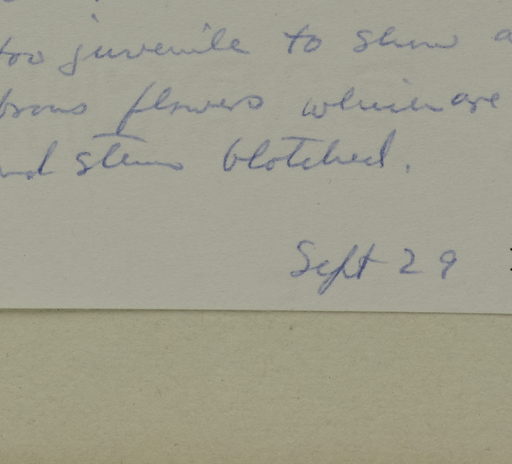 too juvenile to show a
flowers which are
and stem blotched.
Sept 29